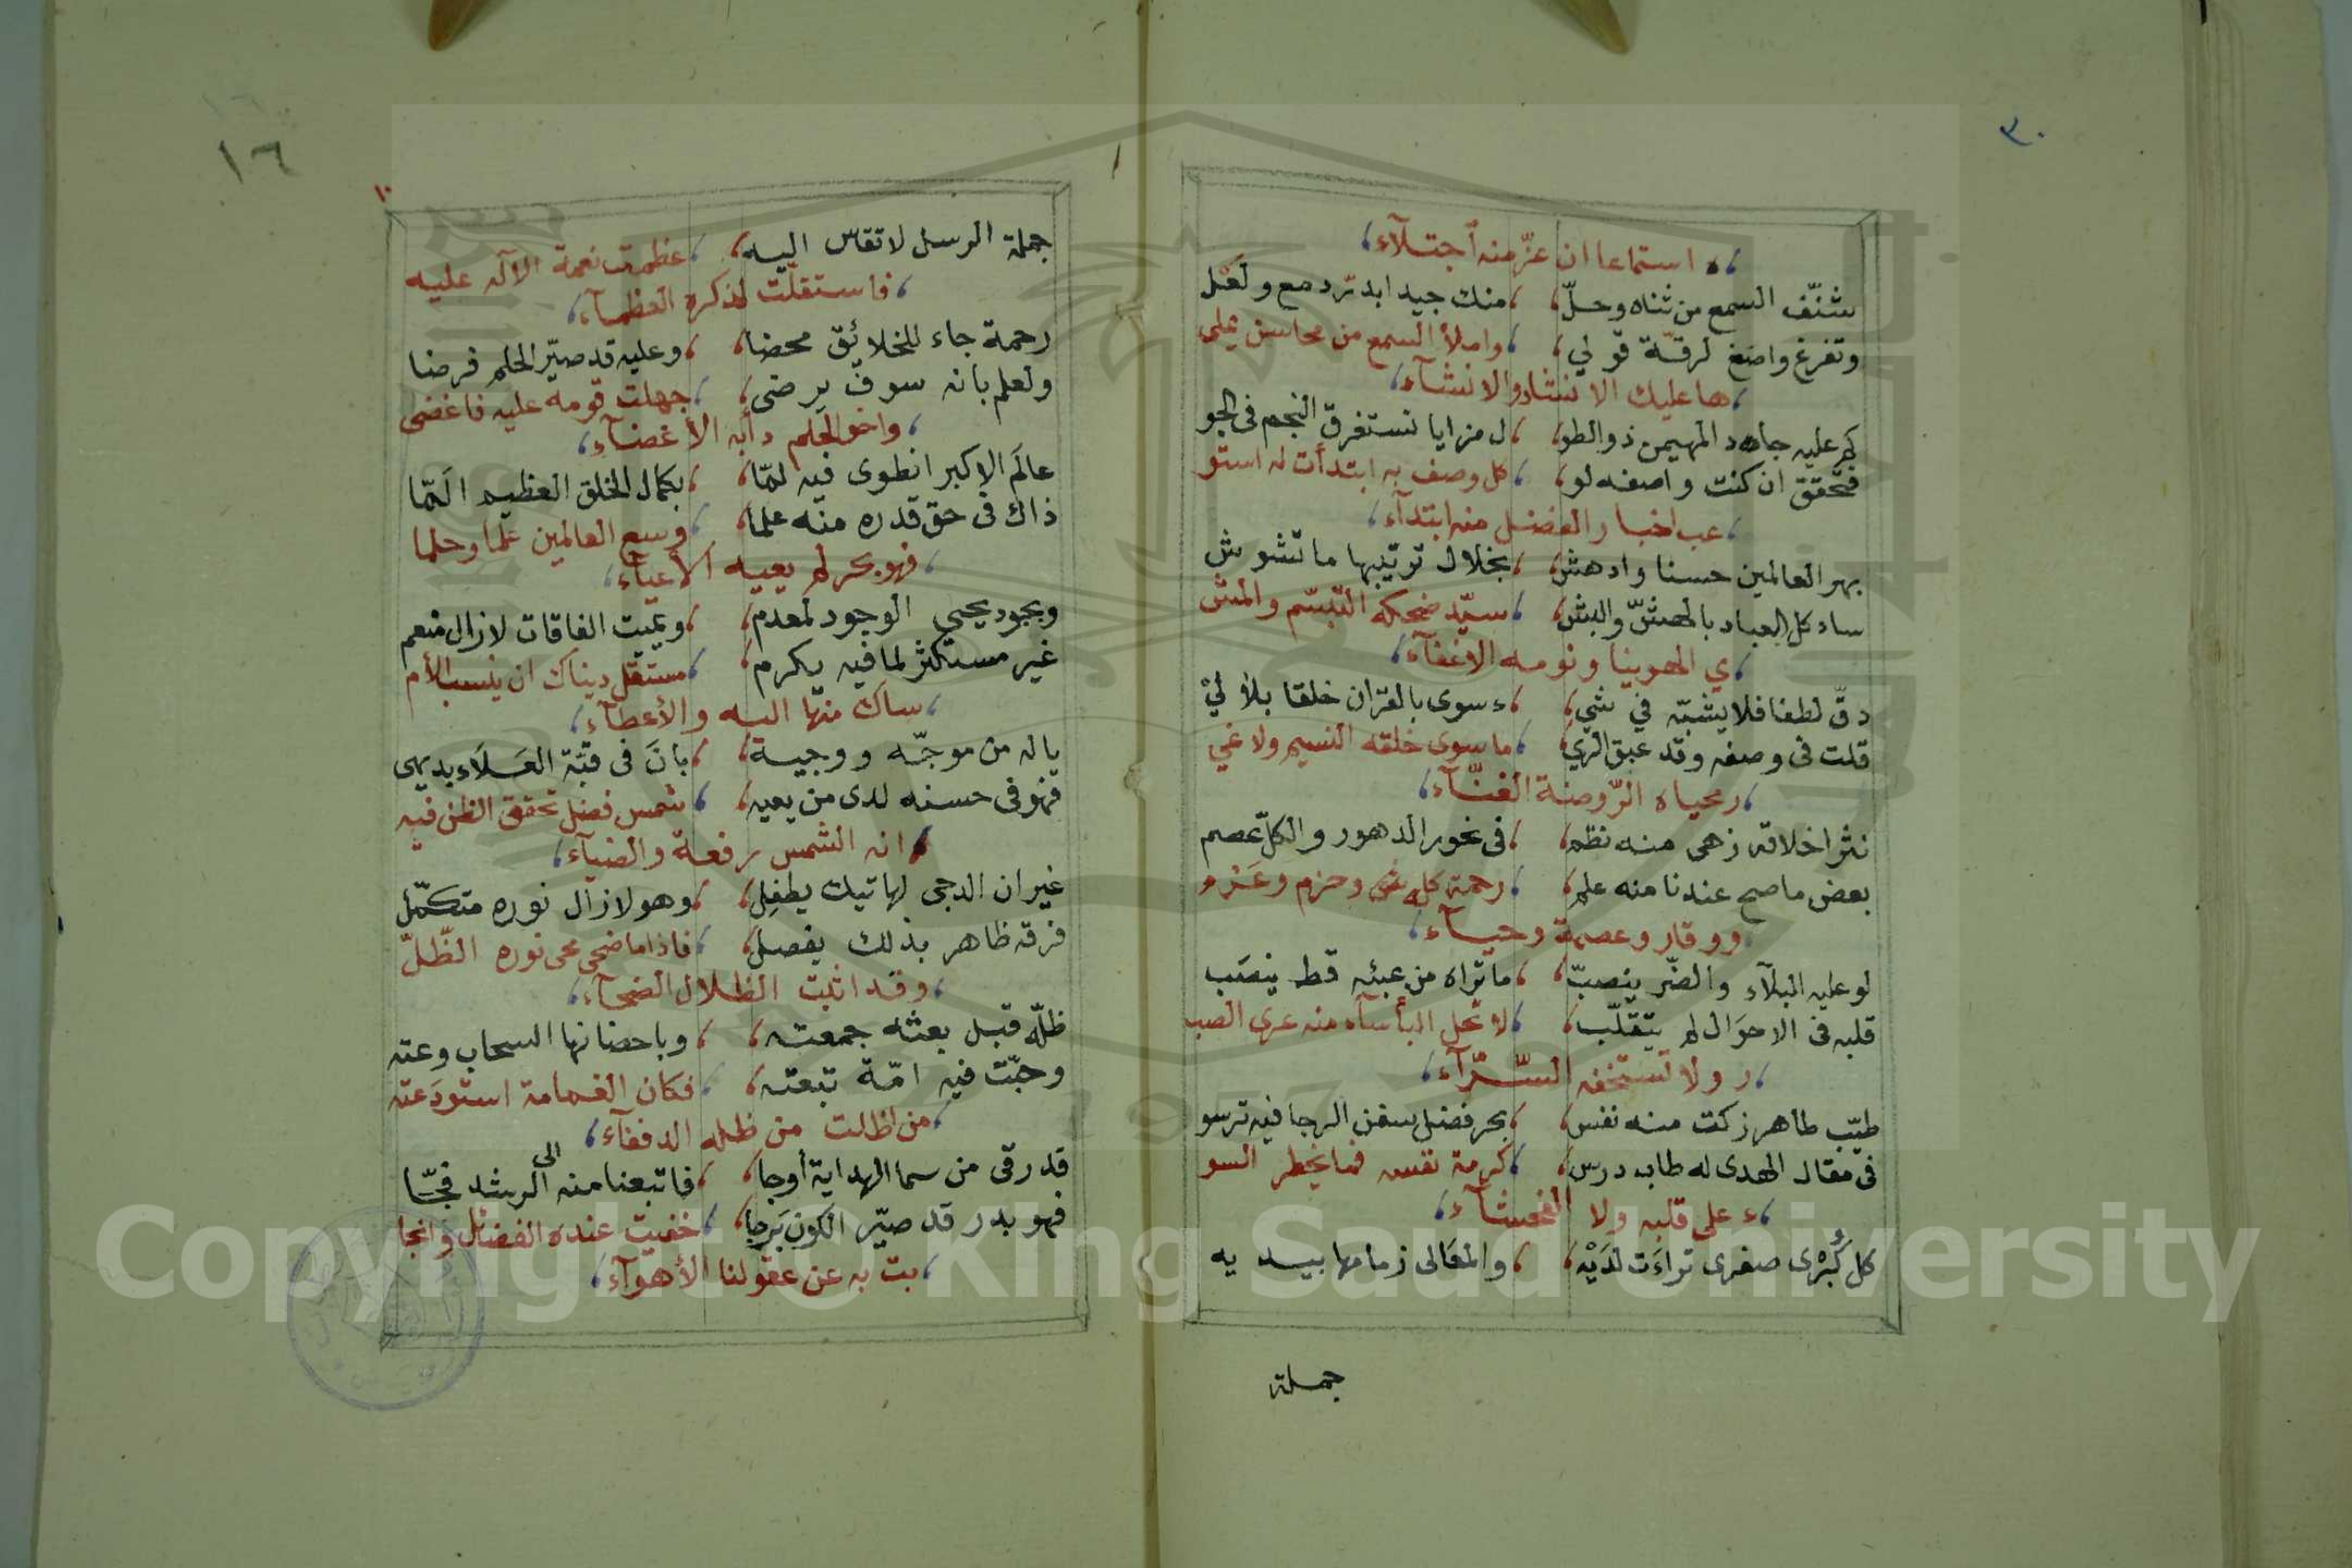 ٣٠
ه استماعا ان عزّ منه اجتلآء
شنّف السمع من ثناه وحلّ منك جيد ابدرّ دمع ولعْل
وتفرغ واصغ لرقّة قولي واملأ السمع من محاسن يملي
ها عليك الانشاد والانشآء
كم عليه جاد المهيمن ذو الطو ل مزايا تستغرق النجم فى الجو
فتحقق ان كنت واصفه لو كل وصف به ابتدأت له استو
عب اخبار الفضل منه ابتدآء
بهر العالمين حسنا وادهش بخلال ترتيبها ما تشوش
ساد كل العباد بالهشّ والبش سيّد ضحكه التبسّم والمش
ي الهوينا ونومه الاغفآء
دقّ لطفا فلا يشبّه في شي ء سوى بالقران خلقا بلا ليْ
قلت فى وصفه وقد عبق الري ما سوى خلقه النسيم ولا غي
ر محياه الرّوضة الغنّآء
نثر اخلاقه زهى منه نظم فى نحور الدهور والكلّ عصم
بعض ما صح عندنا منه علم رحمة كله وحزم وعَزم
ووقار وعصمة وحيآء
لو عليه البلآء والضّر ينصبّ ما تراه من عبئه قط ينصَب
قلبه فى الاحوَال لم يتقلّب لا تحل البأسآء منه عرى الصب
ر ولا تستخفه السّرّآء
طيّب طاهر زكت منه نفس بحر فضل سفن الرجا فيه ترسو
فى مقال الهدى له طاب درس كرمة نفسه فما يخطر السو
ء على قلبه ولا الفحشآء
كل كُبْرى صغرى تراءَت لدَيْه والمعَالى زمامها بيديه
جملة
١٦
١٠
جملة الرسل لا تقاس اليه عظمت نعمة الاله عليه
فاستقلّت لذكره العظمآء
رحمة جاء للخلائق محضا وعليه قد صيّر الحلم فرضا
ولعلم بانه سوف يرضى جهلت قومه عليه فاغضى
واخو الحلم دأبه الأغضآء
عالَم الاكبر انطوى فيه لمّا بكمال الخلق العظيم المّا
ذاك فى حق قدره منه علما وسع العالمين علما وحلما
فهو بحر لم يعييه الأعيآء
وبجود يحيى الوجود لمعدم ويميت الفاقات لازال منعم
غير مستكثر لما فيه يكرم مستقل ديناك ان ينسب الأم
ساك منها اليه والأعطآء
ياله من موجّه ووجيه بانَ فى قبّة العَلَاء بديهى
فهو فى حسنه لدى من يعيه شمس فضل تحقق الظن فيه
انه الشمس رفعة والضيآء
غير ان الدجى لهاتيك يطفِل وهو لازال نوره متكمّل
فرقه ظاهر بذلك يفصل فاذا ما ضحى محى نوره الظّلّ
وقد اثبت الظلال الضحآء
ظلّه قبل بعثه جمعته وباحضانها السحاب وعته
وحبّت فيه امّة تبعته فكان الغمامة استودَعته
من اظلت من ظله الدففآء
قد رقى من سما الهداية أوجا فاتبعنا منه الى الرشد فجّا
فهو بدر قد صيّر الكون بَرجا خفيت عنده الفضائل وانجا
بت به عن عقولنا الأهوآء
Copyright © King Saud University
1957